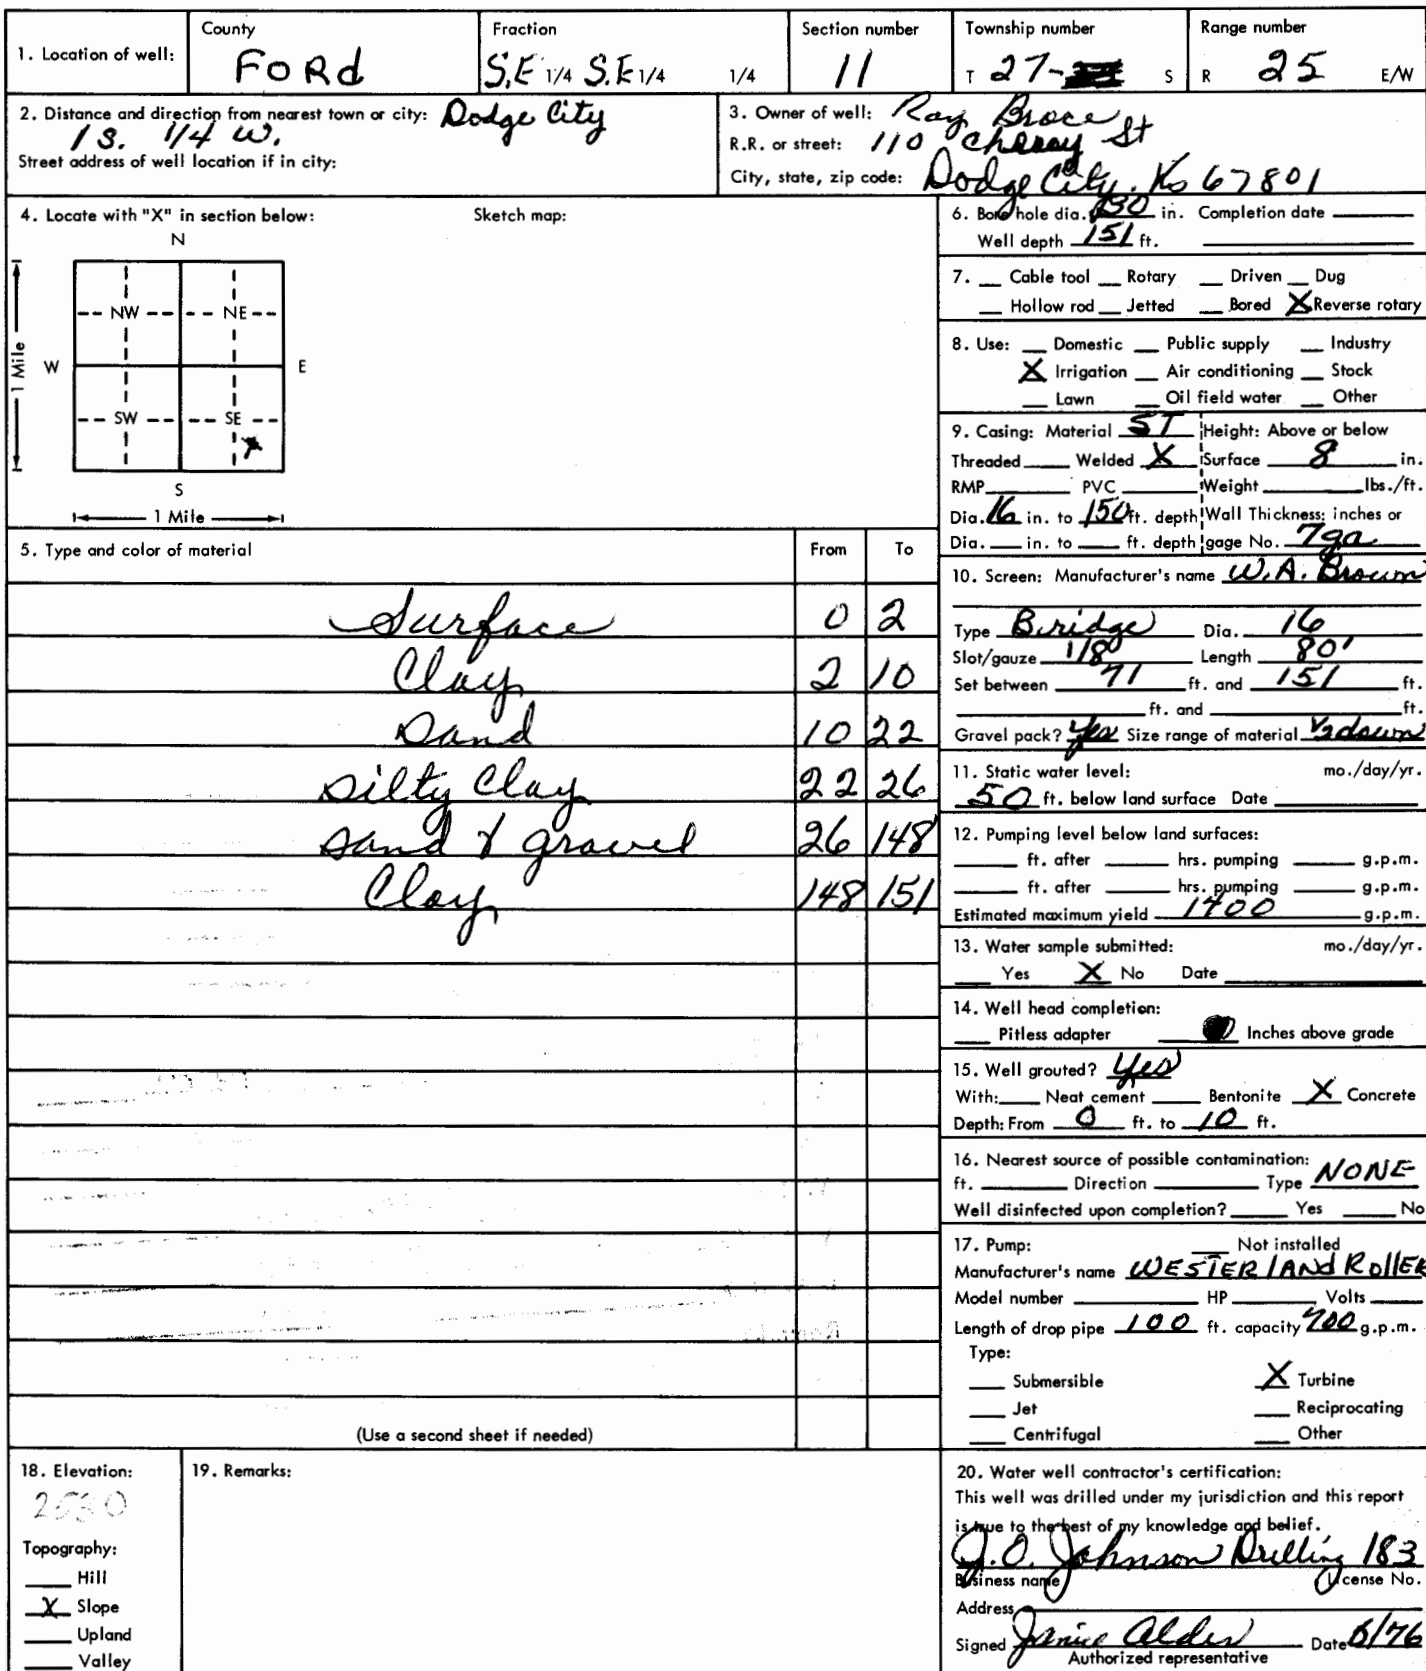 1. Location of well:
County
FORd
Fraction
S.E 1/4 S.E 1/4 1/4
Section number
11
Township number
T 27- S
Range number
R 25 E/W
2. Distance and direction from nearest town or city: Dodge City
1 S. 1/4 W.
Street address of well location if in city:
3. Owner of well: Ray Broce
R.R. or street: 110 Cherry St
City, state, zip code: Dodge City, Ks 67801
4. Locate with "X" in section below:
Sketch map:
N
NW NE
W E
1 Mile
SW SE
S
1 Mile
5. Type and color of material From To
Surface 0 2
Clay 2 10
Sand 10 22
Silty Clay 22 26
Sand & gravel 26 148
Clay 148 151
(Use a second sheet if needed)
6. Bore hole dia. 30 in. Completion date
Well depth 151 ft.
7. Cable tool Rotary Driven Dug
Hollow rod Jetted Bored X Reverse rotary
8. Use: Domestic Public supply Industry
X Irrigation Air conditioning Stock
Lawn Oil field water Other
9. Casing: Material ST Height: Above or below
Threaded Welded X Surface 8 in.
RMP PVC Weight lbs./ft.
Dia. 16 in. to 150 ft. depth Wall Thickness: inches or
Dia. in. to ft. depth gage No. 7ga
10. Screen: Manufacturer's name W.A. Brown
Type Bridge Dia. 16
Slot/gauze 1/8 Length 80'
Set between 71 ft. and 151 ft.
ft. and ft.
Gravel pack? Yes Size range of material 1/2 down
11. Static water level: mo./day/yr.
50 ft. below land surface Date
12. Pumping level below land surfaces:
ft. after hrs. pumping g.p.m.
ft. after hrs. pumping g.p.m.
Estimated maximum yield 1400 g.p.m.
13. Water sample submitted: mo./day/yr.
Yes X No Date
14. Well head completion:
Pitless adapter Inches above grade
15. Well grouted? Yes
With: Neat cement Bentonite X Concrete
Depth: From 0 ft. to 10 ft.
16. Nearest source of possible contamination:
ft. Direction Type NONE
Well disinfected upon completion? Yes No
17. Pump: Not installed
Manufacturer's name WESTERlANd RollER
Model number HP Volts
Length of drop pipe 100 ft. capacity 700 g.p.m.
Type:
Submersible X Turbine
Jet Reciprocating
Centrifugal Other
18. Elevation:
2530
Topography:
Hill
X Slope
Upland
Valley
19. Remarks:
20. Water well contractor's certification:
This well was drilled under my jurisdiction and this report
is true to the best of my knowledge and belief.
J.O. Johnson Drilling 183
Business name License No.
Address
Signed Janice Alder Date 6/76
Authorized representative